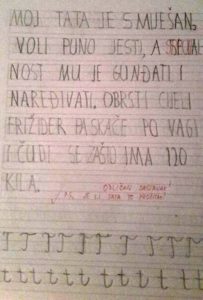 MOJ TATA JE SMJEŠAN,
VOLI PUNO JESTI, A SPECIJAL
NOST MU JE GUNĐATI I
NAREĐIVATI. OBRSTI CIJELI
FRIŽIDER PA SKAČE PO VAGI
I ČUDI SE ZAŠTO IMA 120
KILA.
ODLIČAN SASTAVAK!
P.S. JE LI TATA TO PROČITAO?
T T T T T T T T
t t t t t t t t t